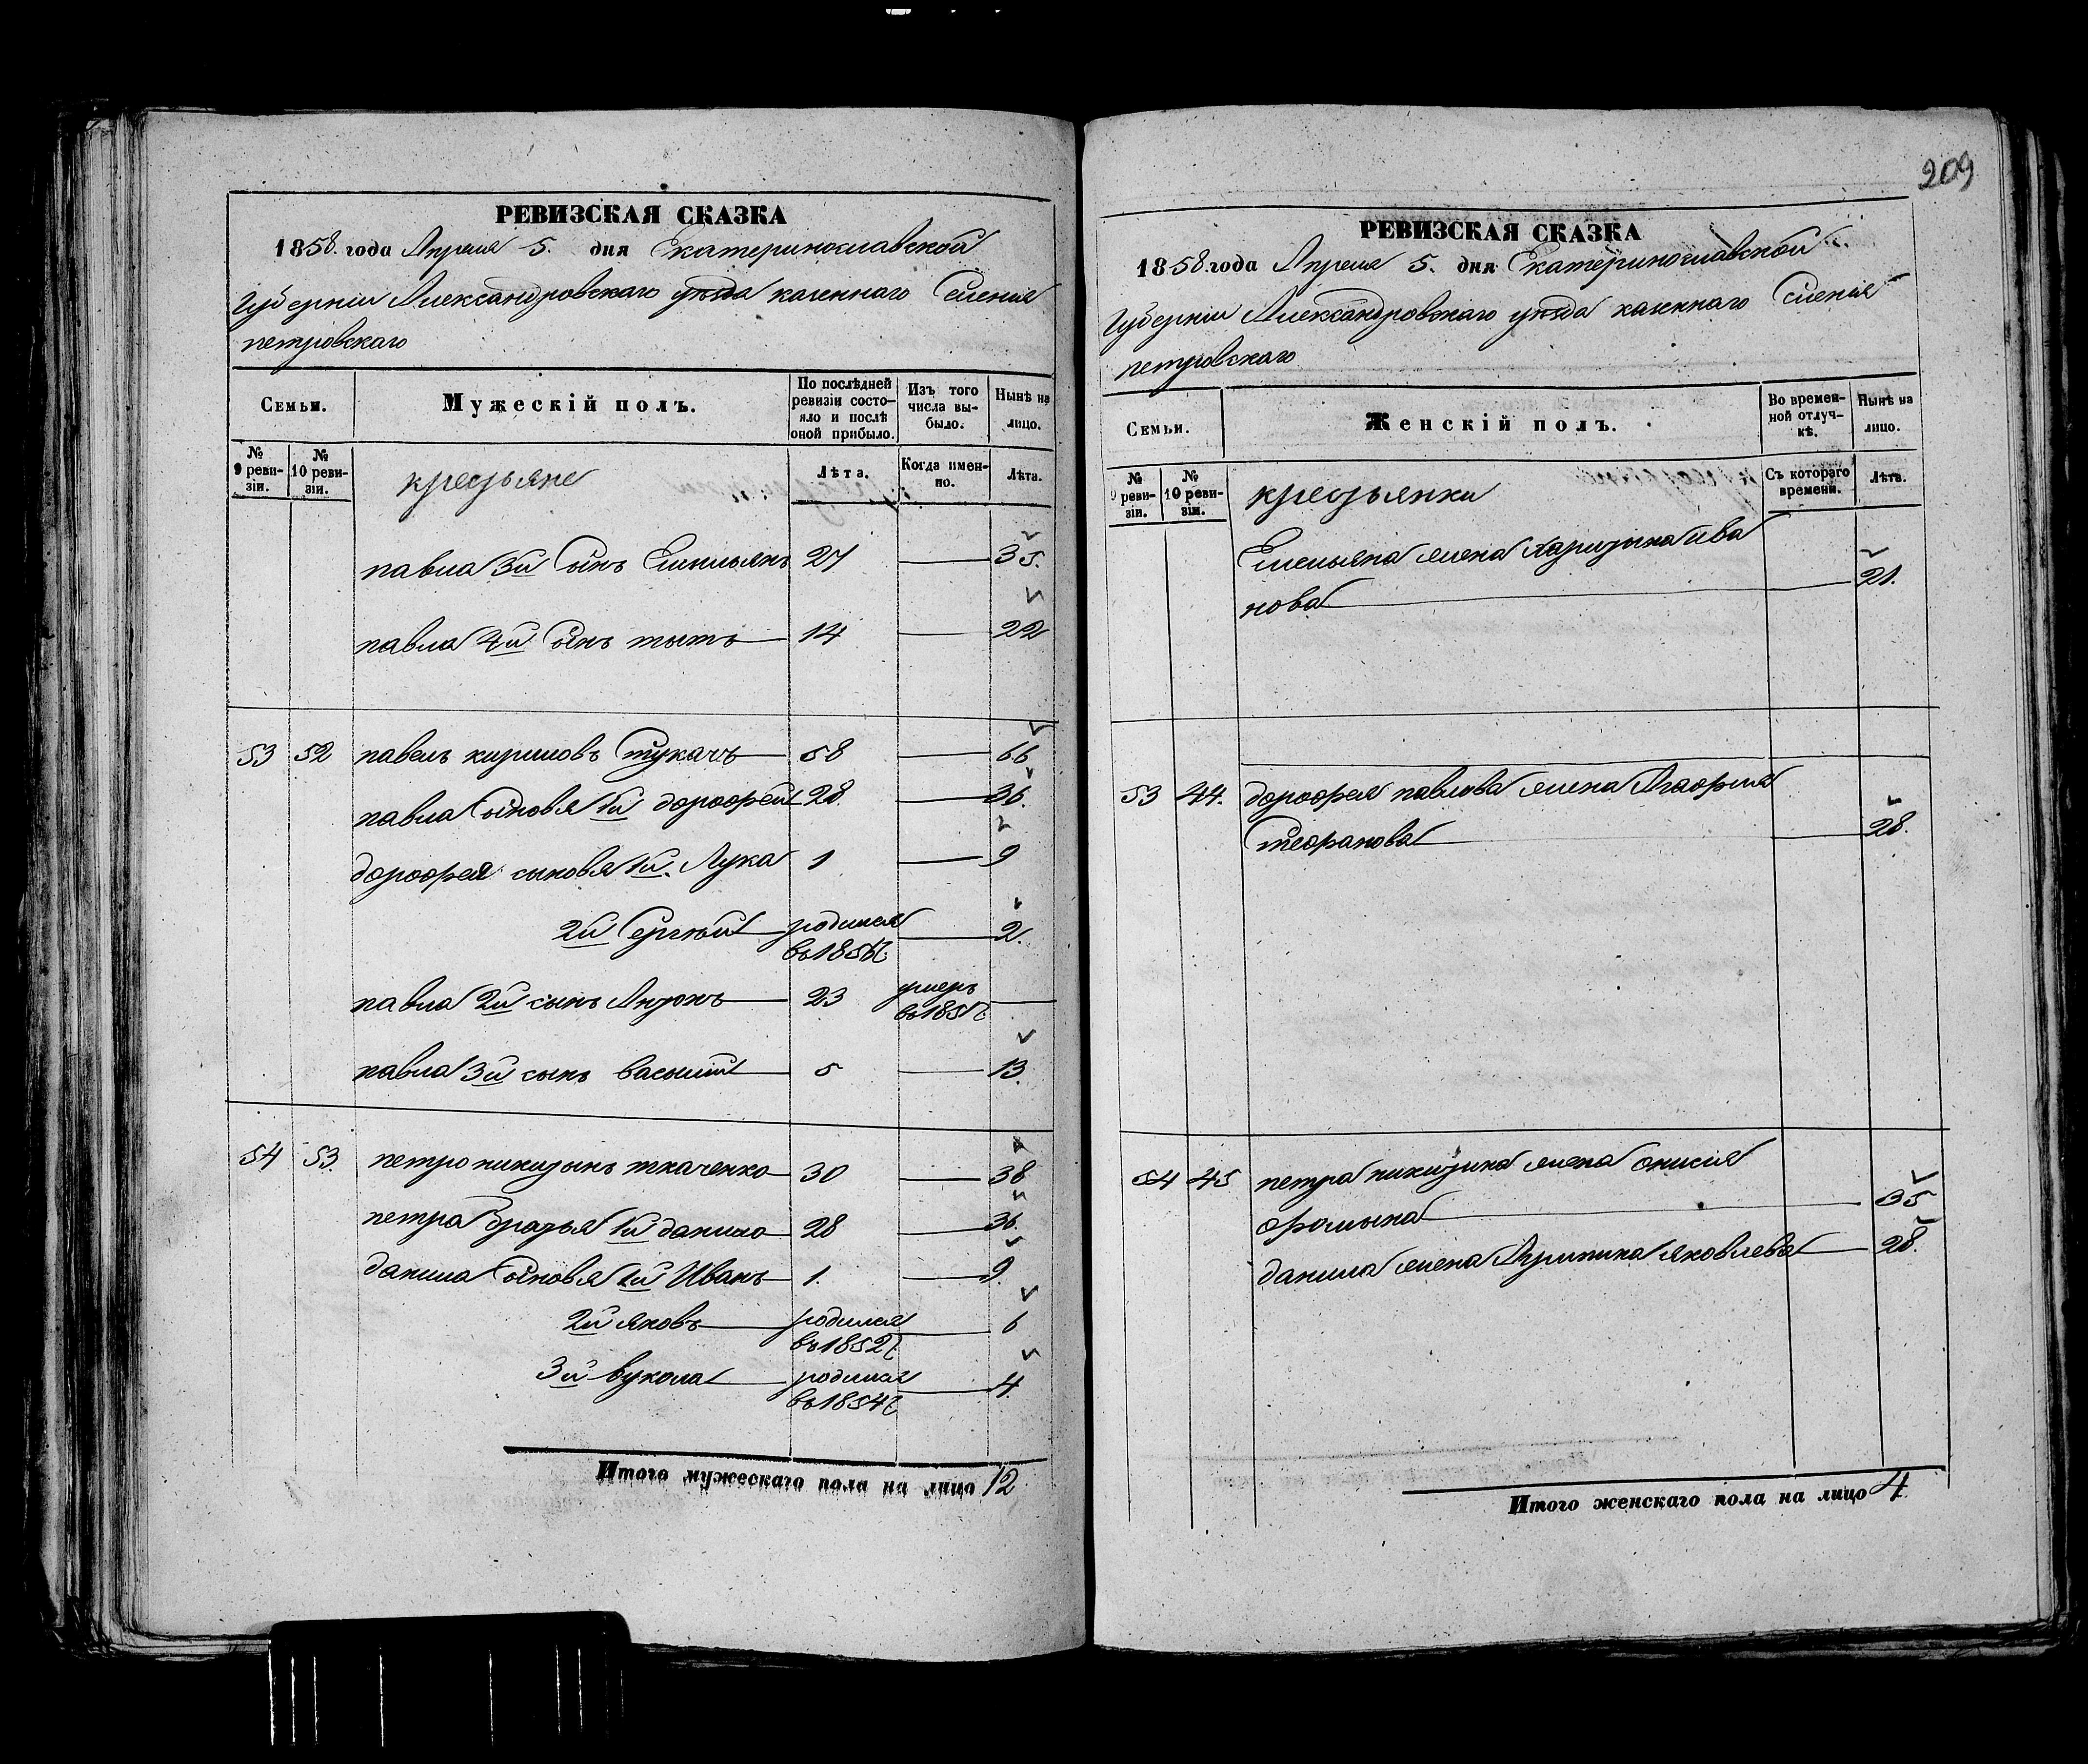 РЕВИЗСКАЯ СКАЗКА
1858. года Апреля 5. дня Екатеринославской
Губерніи Александровскаго уезда казеннаго Селенія
петровскаго
Семьи.
Мужескій полъ.
По послѣдней ревизіи состо-
яло и послѣ
оной прибыло.
Изъ того
числа вы-
было.
Нынѣ на
лицо.
№
9 реви-
зіи.
№
10 реви-
зіи.
крестьяне
Лѣта.
Когда имен-
но.
Лѣта.
павла 3й Сынъ Емельянъ 27 — 35.
павла 4й Сынъ тытъ 14 — 22
53 52 павелъ кириловъ 58 — 66
павла Сыновя 1й дорофей 28. — 36.
дорофея сыновя 1й. Лука 1 — 9
2й Сергѣй родился — 2.
въ 1856г.
павла 2й сынъ Антонъ 23 умеръ —
павла 3й сынъ васылій 5 — 13.
54 53. петро никитынъ ткаченко 30 — 38
петра братья 1й данило 28 — 36.
данила Сыновя 1й Иванъ 1. — 9.
2й яковъ родился — 6
въ 1852г
3й вукола родился — 4.
въ 1854г
Итого мужескаго пола на лицо 12
209
РЕВИЗСКАЯ СКАЗКА
1858. года Апреля 5. дня Екатеринославской
Губерніи Александровскаго уезда казеннаго Селенія
петровскаго
Семьи.
Женскій полъ.
Во времен-
ной отлуч-
кѣ.
Нынѣ на
лицо.
№
9 реви-
зіи.
№
10 реви-
зіи.
крестьянки
Съ котораго
времени.
Лѣта.
Емельяна жена Харитына ива
нова — 21.
53 44. дорофея павлова жена Агафия
— 28.
54 45 петра никитина жена онисия
— 35
данила жена яковлева — 28.
Итого женскаго пола на лицо 4